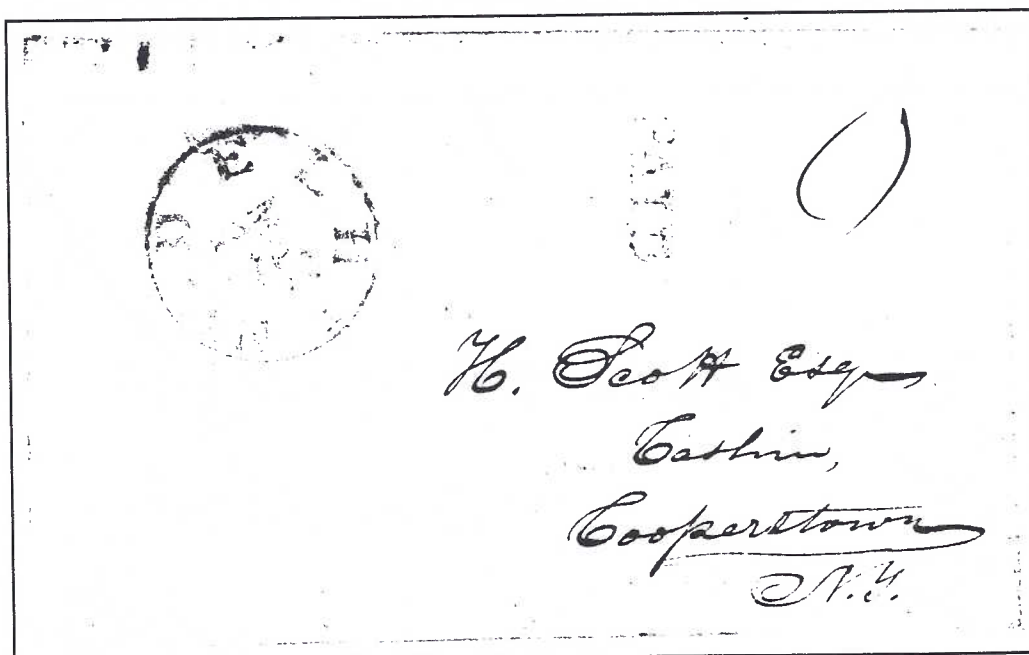 PAID
H. Scott Esq
Cashier,
Cooperstown
N.Y.